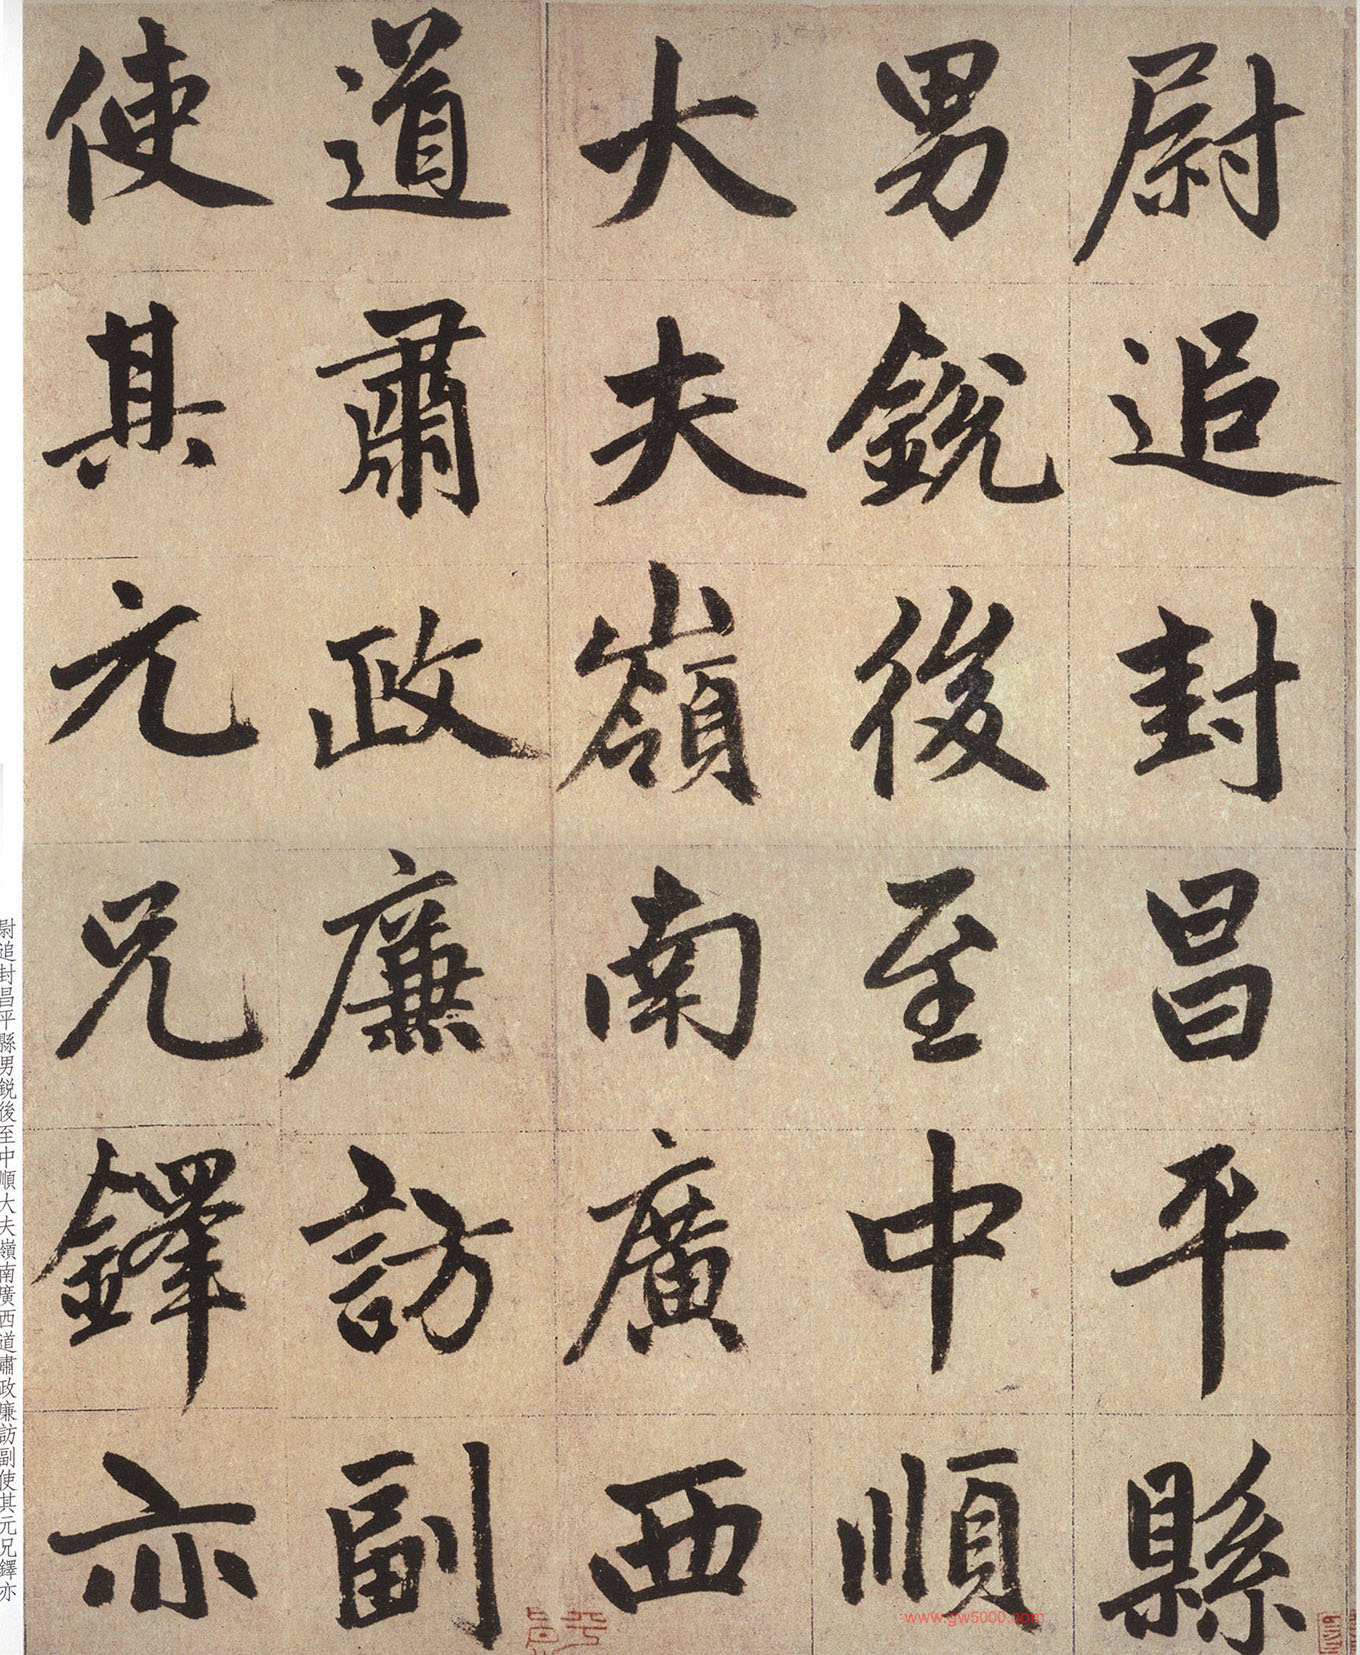 尉追封昌平縣
男銳後至中順
大夫嶺南廣西
道肅政廉訪副
使其元兄鐸亦
尉追封昌平縣男銳後至中順大夫嶺南廣西道肅政廉訪副使其元兄鐸亦
www.gw5000.com